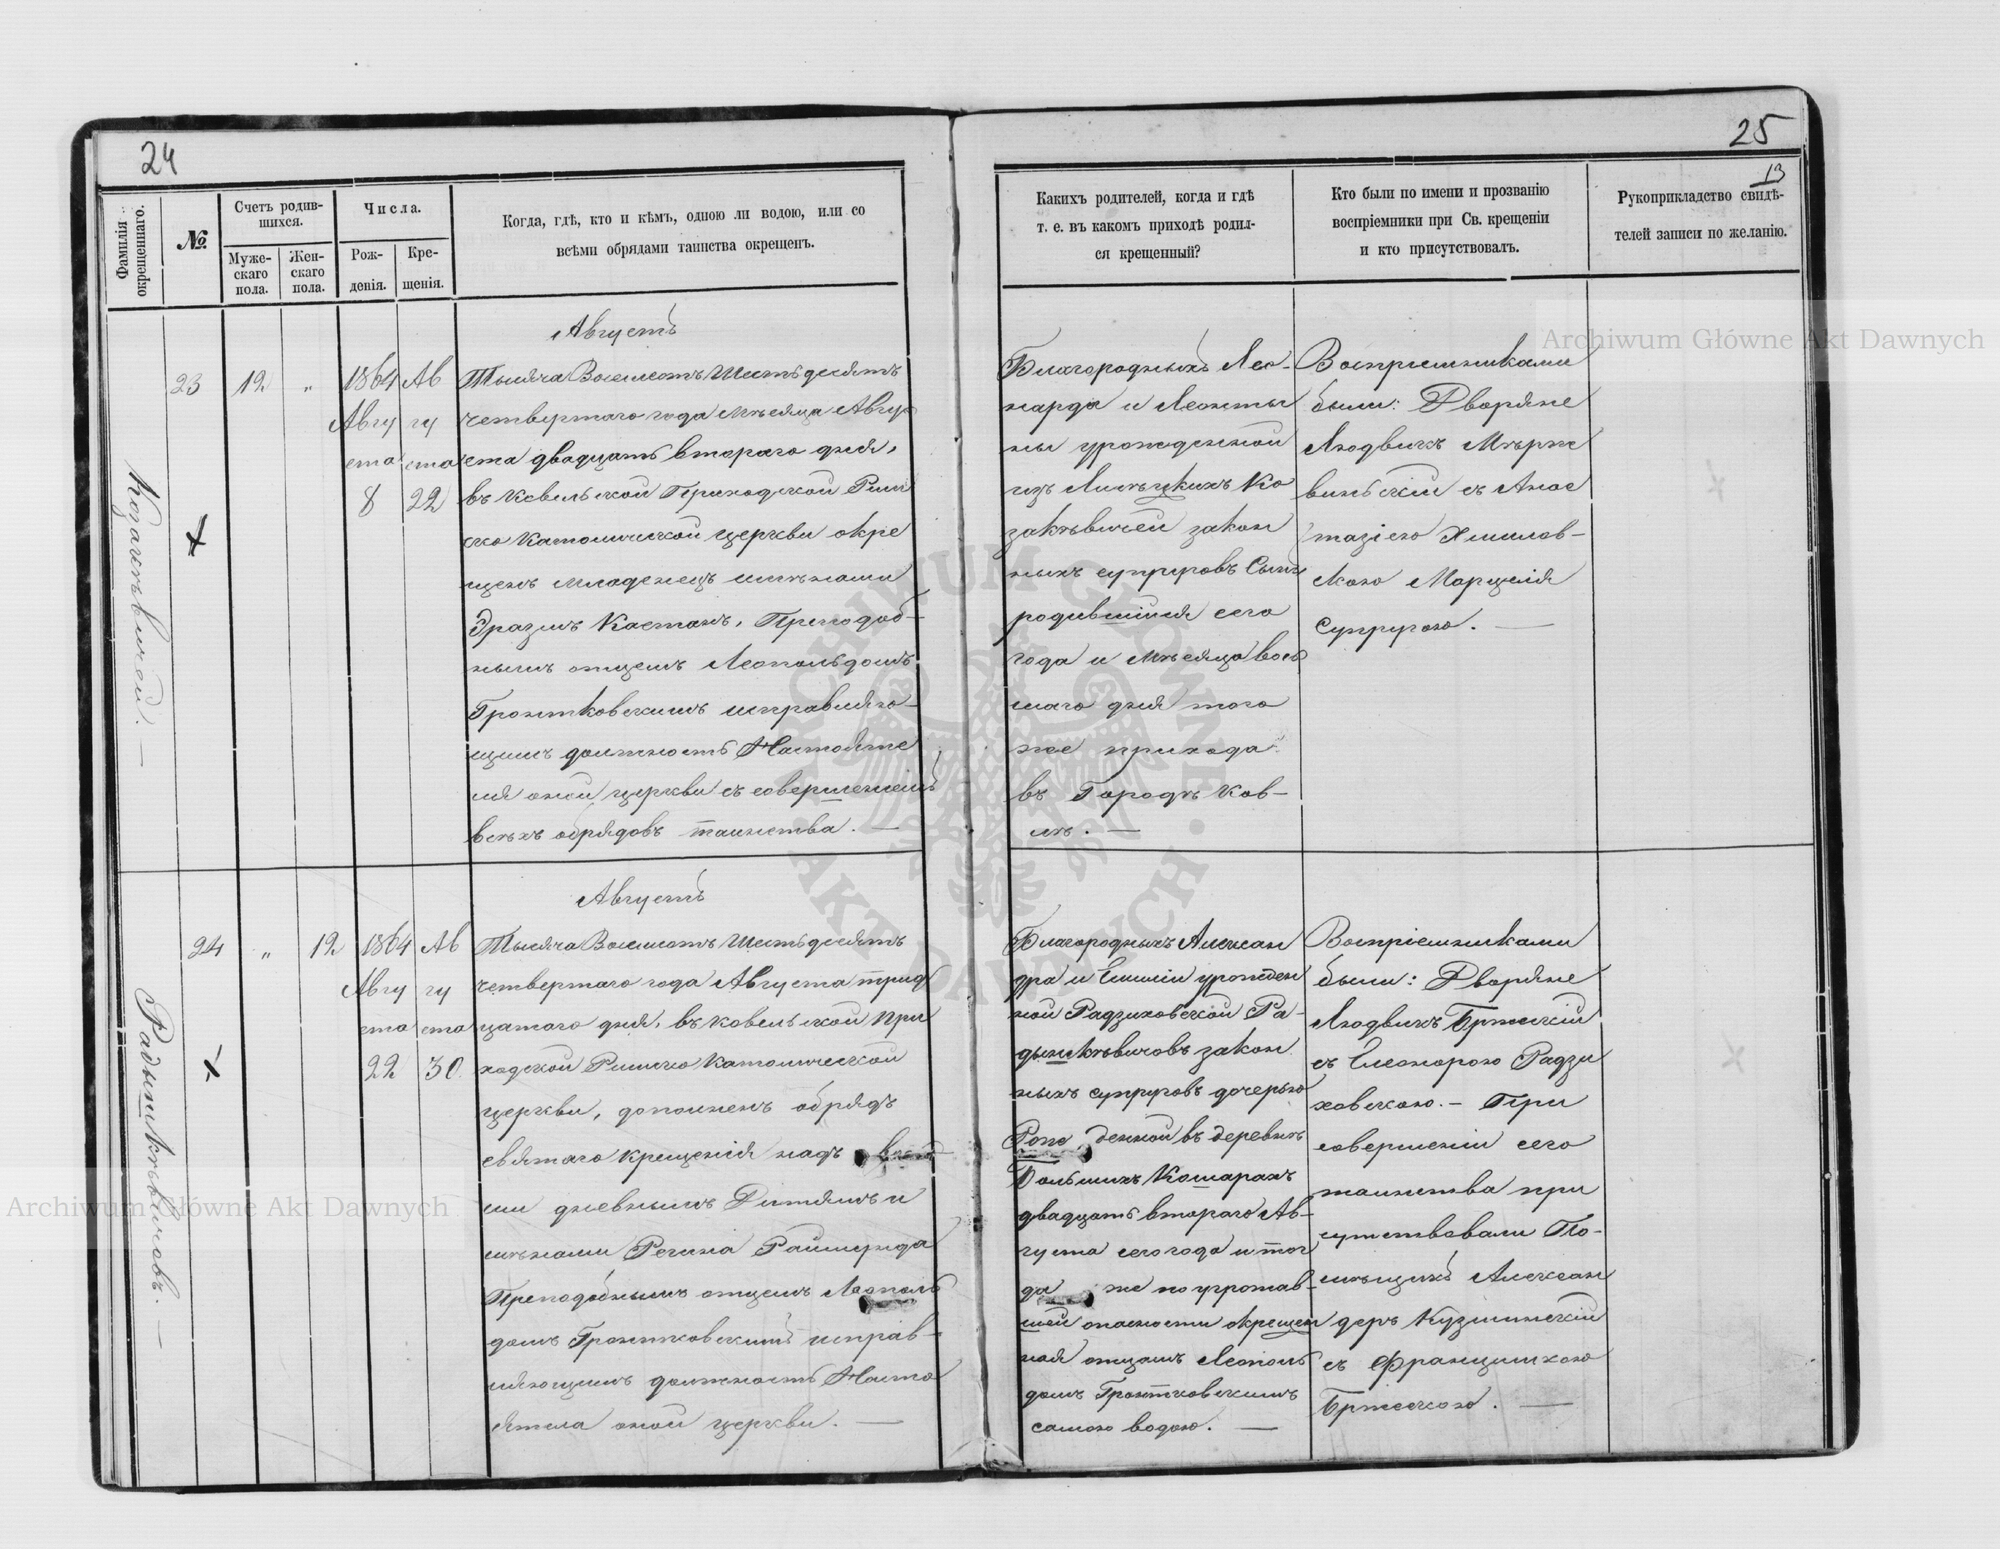 24
Фамилія окрещеннаго.
№
Счетъ родив-
шихся.
Муже-
скаго
пола.
Жен-
скаго
пола.
Числа.
Рож-
денія.
Кре-
щенія.
Когда, гдѣ, кто и кѣмъ, одною ли водою, или со
всѣми обрядами таинства окрещенъ.
Августъ
23
12
"
1864
Авгу
ста
8
Ав
гу
ста
22
Тысяча Восемсотъ Шестьдесятъ
четвертаго года Мѣсяца Авгу
ста двадцать втораго дня,
въ Ковельской Приходской Рим
ско Католической церкви окре
щенъ младенецъ имѣнами
Эразмъ Каетанъ, Преподоб-
нымъ отцемъ Леопольдомъ
Гронтковскимъ исправляю-
щимъ должность Настояте
ля оной церкви съ совершеніемъ
всѣхъ обрядовъ таинства. —
Августъ
24
"
12
1864
Авгу
ста
22
Ав
гу
ста
30
Тысяча Восемсотъ Шестьдесятъ
четвертаго года Августа трид
цатого дня, въ Ковельской При
ходской Римско Католической
церкви, дополненъ обрядъ
святаго крещенія надъ
ми дневнымъ Дитямъ и
имѣнами Регина Раймунда
Преподобнымъ отцемъ Леополь
домъ Гронтковскимъ исправ-
ляющимъ должность Насто
ятела оной церкви. —
Радынскѣвичовъ. —
25
13
Какихъ родителей, когда и гдѣ
т. е. въ какомъ приходѣ родил-
ся крещенный?
Кто были по имени и прозванію
воспріемники при Св. крещеніи
и кто присутствовалъ.
Рукоприкладство свидѣ-
телей записи по желанію.
Благородныхъ Лео-
нарда и Леонты
ны урожденной
изъ Козакѣвичей закон
ныхъ супруговъ Сынъ
родившійся сего
года и Мѣсяца вось
маго дня того
же прихода
въ Городѣ Ков-
лѣ. —
Воспріемниками
были: Дворяне
Людвикъ
съ Анас
тазіею
Марцелія
Супругою. —
Благородныхъ Алексан
дра и Емиліи урожден
ной Радзиховской Ра-
дынскѣвичовъ закон
ныхъ супруговъ дочерью
Рожденной въ деревнѣ
Большихъ Кошарахъ
двадцать втораго Ав-
густа сего года и тог
да же по угрожав-
шей опасности окрещен
ная отцамъ Леополь
домъ Гронтковскимъ
самою водою. —
Воспріемниками
были: Дворяне
Людвикъ Бржескій
съ Елеонорою Радзи
ховскою. — При
совершеніи сего
таинства при
сутствовали По-
мѣщикъ Алексан
деръ Кузминскій
съ Францишкою
Бржескою. —
Archiwum Główne Akt Dawnych
Archiwum Główne Akt Dawnych
ARCHIWUM GŁÓWNE · AKT DAWNYCH ·